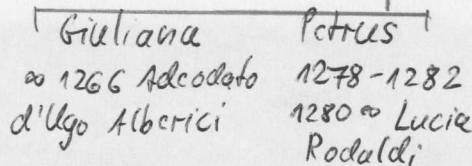 Giuliana
∞ 1266 Adeodato
d'Ugo Alberici
Petrus
1278-1282
1280 ∞ Lucia
Rodaldi